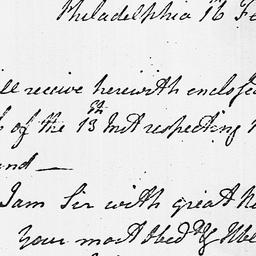 Philadelphia 16 Fe
ll receive herewith enclose
of the 13th Inst respecting
and —
I am Sir with great
Your most Obedt